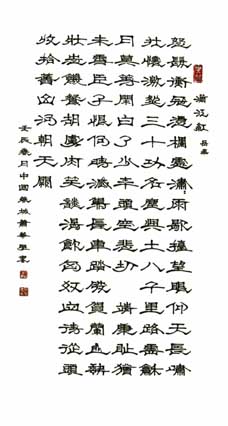 滿江紅 岳飛
怒髮衝冠憑欄處瀟〻雨歇擡望眼仰天長嘯
壯懷激烈三十功名塵與土八千里路雲龢
月莫等閒白了少年頭空悲切 靖康恥猶
未雪臣子恨何時滅駕長車踏破賀蘭山缺
壯志饑餐胡虜肉笑談渴飲匈奴血待從頭
收拾舊山河朝天闕
壬辰春月中國城蕭華書